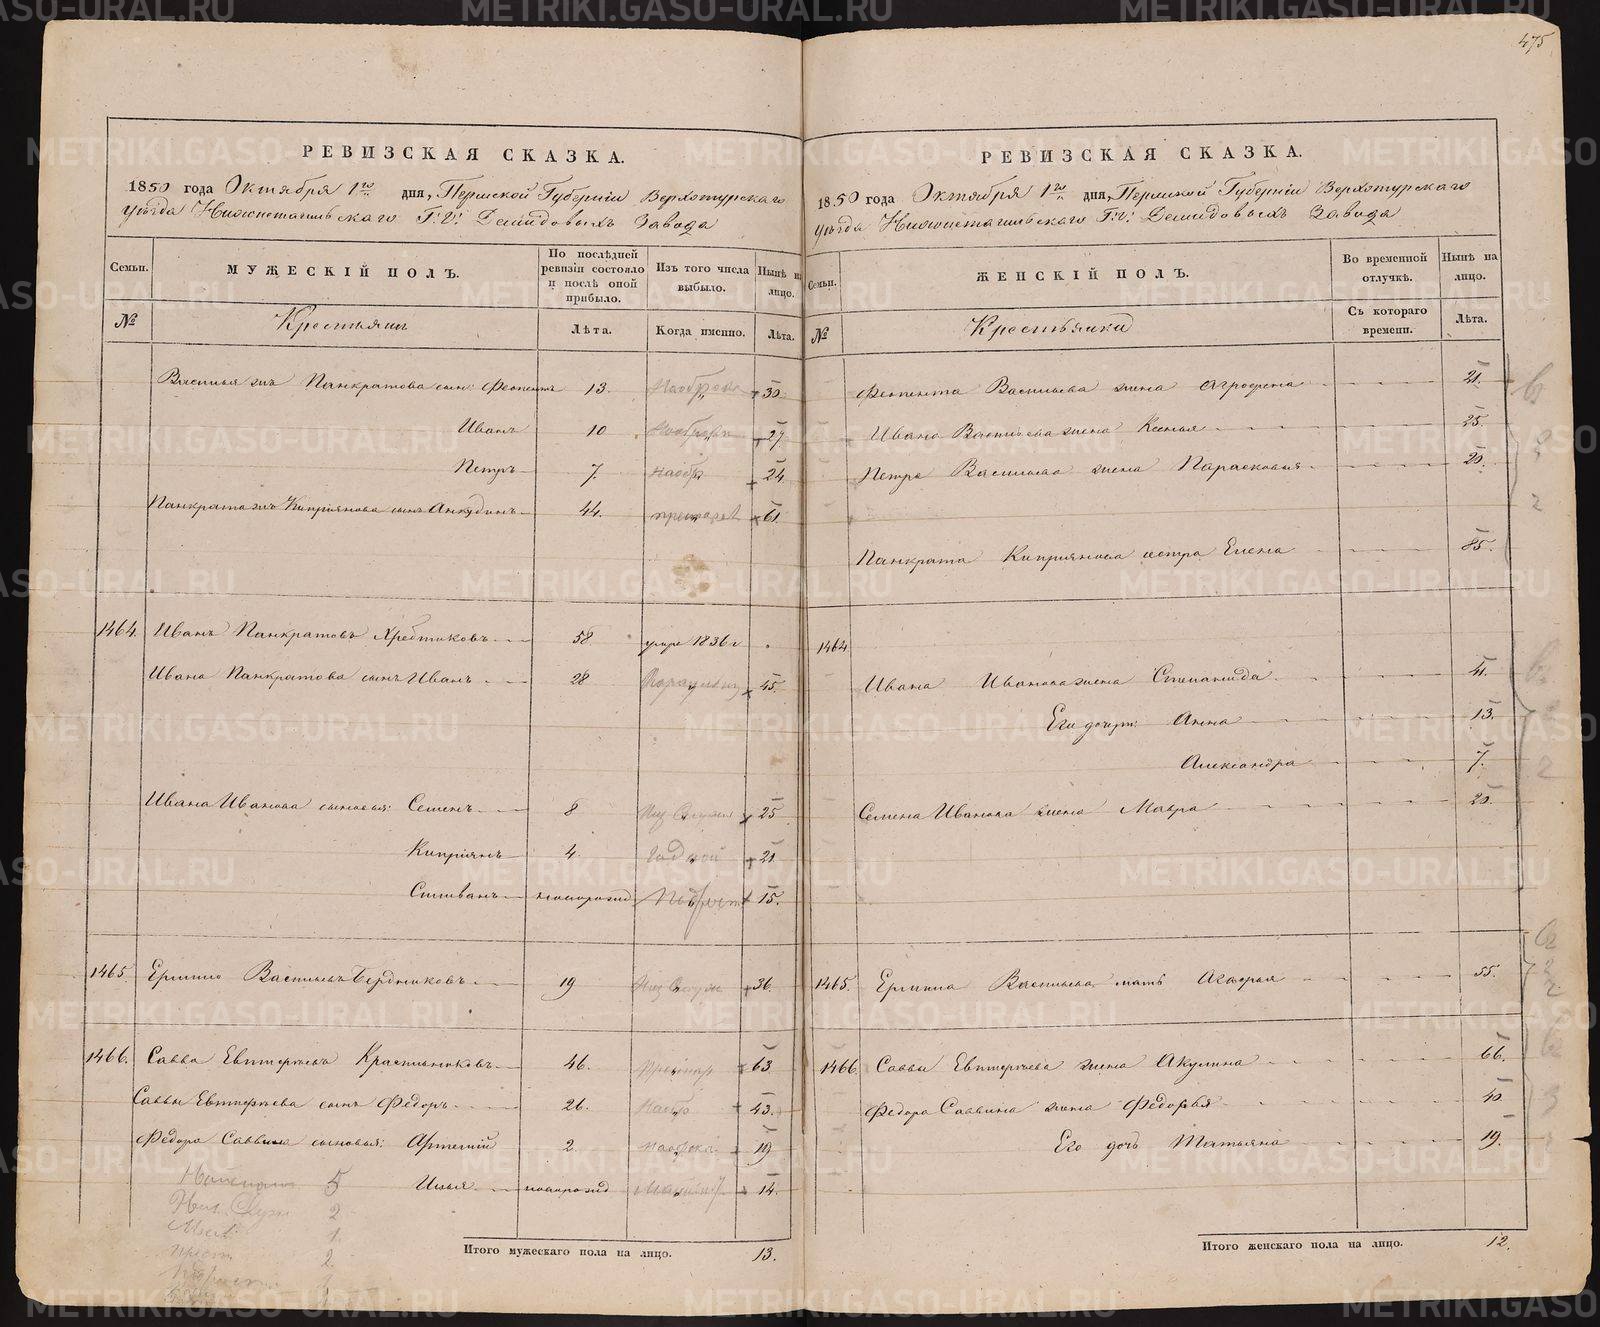 475
РЕВИЗСКАЯ СКАЗКА.
1850 года Октября 1го дня, Пермской Губерніи Верхотурскаго
уѣзда Нижнетагильскаго Г.г. Демидовыхъ Завода
Семьи.
МУЖЕСКІЙ ПОЛЪ.
По послѣдней ревизіи состояло и послѣ оной прибыло.
Изъ того числа выбыло.
Нынѣ на лицо.
№
Крестьяне
Лѣта.
Когда именно.
Лѣта.
Василья Панкратова сын: Феопентъ 13. 30.
Иванъ 10 27
Петръ 7. 24.
Панкрата Кипріянова сынъ Анкудинъ 44. 61
1464. Иванъ Панкратовъ Хребтиковъ 58 умре 1836 г
Ивана Панкратова сынъ Иванъ 28 45.
Ивана Иванова сыновья: Семенъ 8 25
Кипріянъ 4. 21
Стиванъ новорожд 15.
1465. Ермило Васильевъ Бердниковъ 19 36.
1466. Савва Евтифѣевъ Красильниковъ 46. 63
Саввы Евтифѣева сынъ Федоръ 26. 43.
Федора Саввина сыновья: Артемій 2. 19
Илья новорожд 14.
5
2
1
2
Итого мужескаго пола на лицо. 13.
РЕВИЗСКАЯ СКАЗКА.
1850 года Октября 1го дня, Пермской Губерніи Верхотурскаго
уѣзда Нижнетагильскаго Г.г. Демидовыхъ Завода
Семьи.
ЖЕНСКІЙ ПОЛЪ.
Во временной отлучкѣ.
Нынѣ на лицо.
№
Крестьянки
Съ котораго времени.
Лѣта.
Феопента Васильева жена Агрофена 21.
Ивана Васильева жена Ксенья 25.
Петра Васильева жена Парасковья 20.
Панкрата Кипріянова сестра Елена 85.
1464
Ивана Иванова жена Степанида 41.
Его дочери: Анна 13.
Александра 7.
Семена Иванова жена Мавра 20.
1465. Ермила Васильева мать Агафья 55.
1466. Саввы Евтифѣева жена Акулина 66.
Федора Саввина жена Федосья 40
Его дочь Татьяна 19.
Итого женскаго пола на лицо. 12.
METRIKI.GASO-URAL.RU